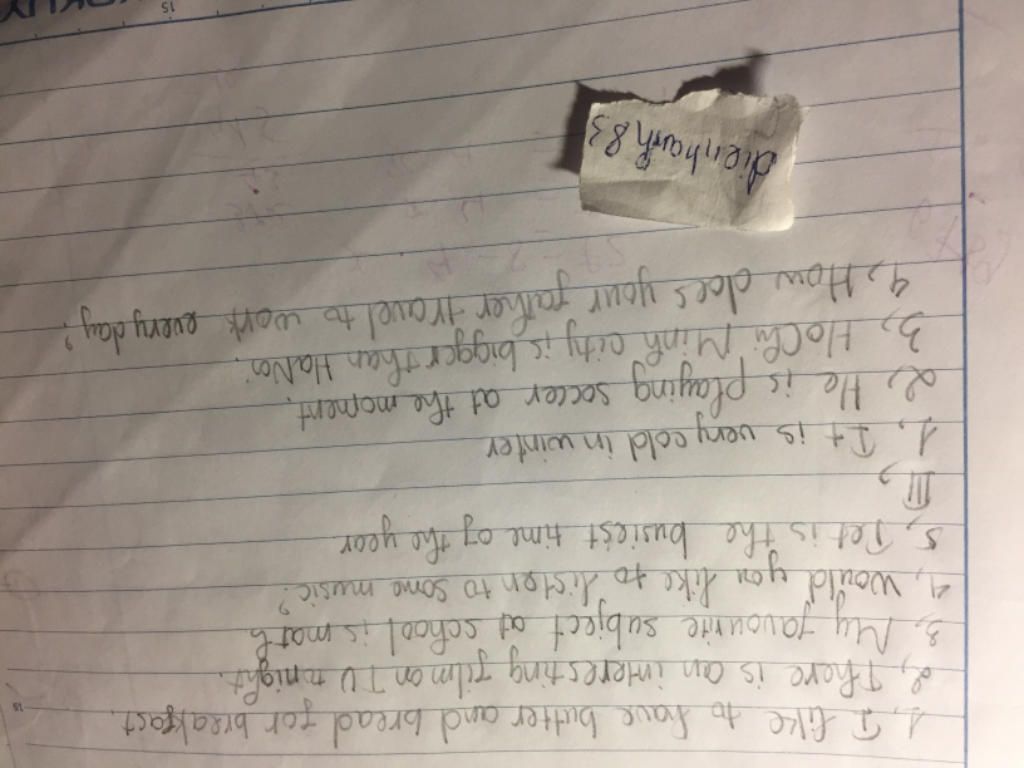 1, I like to have butter and bread for breakfast.
2, There is an interesting film on TV tonight.
3, My favourite subject at school is math
4, Would you like to listen to some music?
5, Tet is the busiest time of the year
III,
1, It is very cold in winter
2, He is playing soccer at the moment.
3, HoChi Minh city is bigger than HaNoi.
4, How does your father travel to work everyday?
dienhanh83